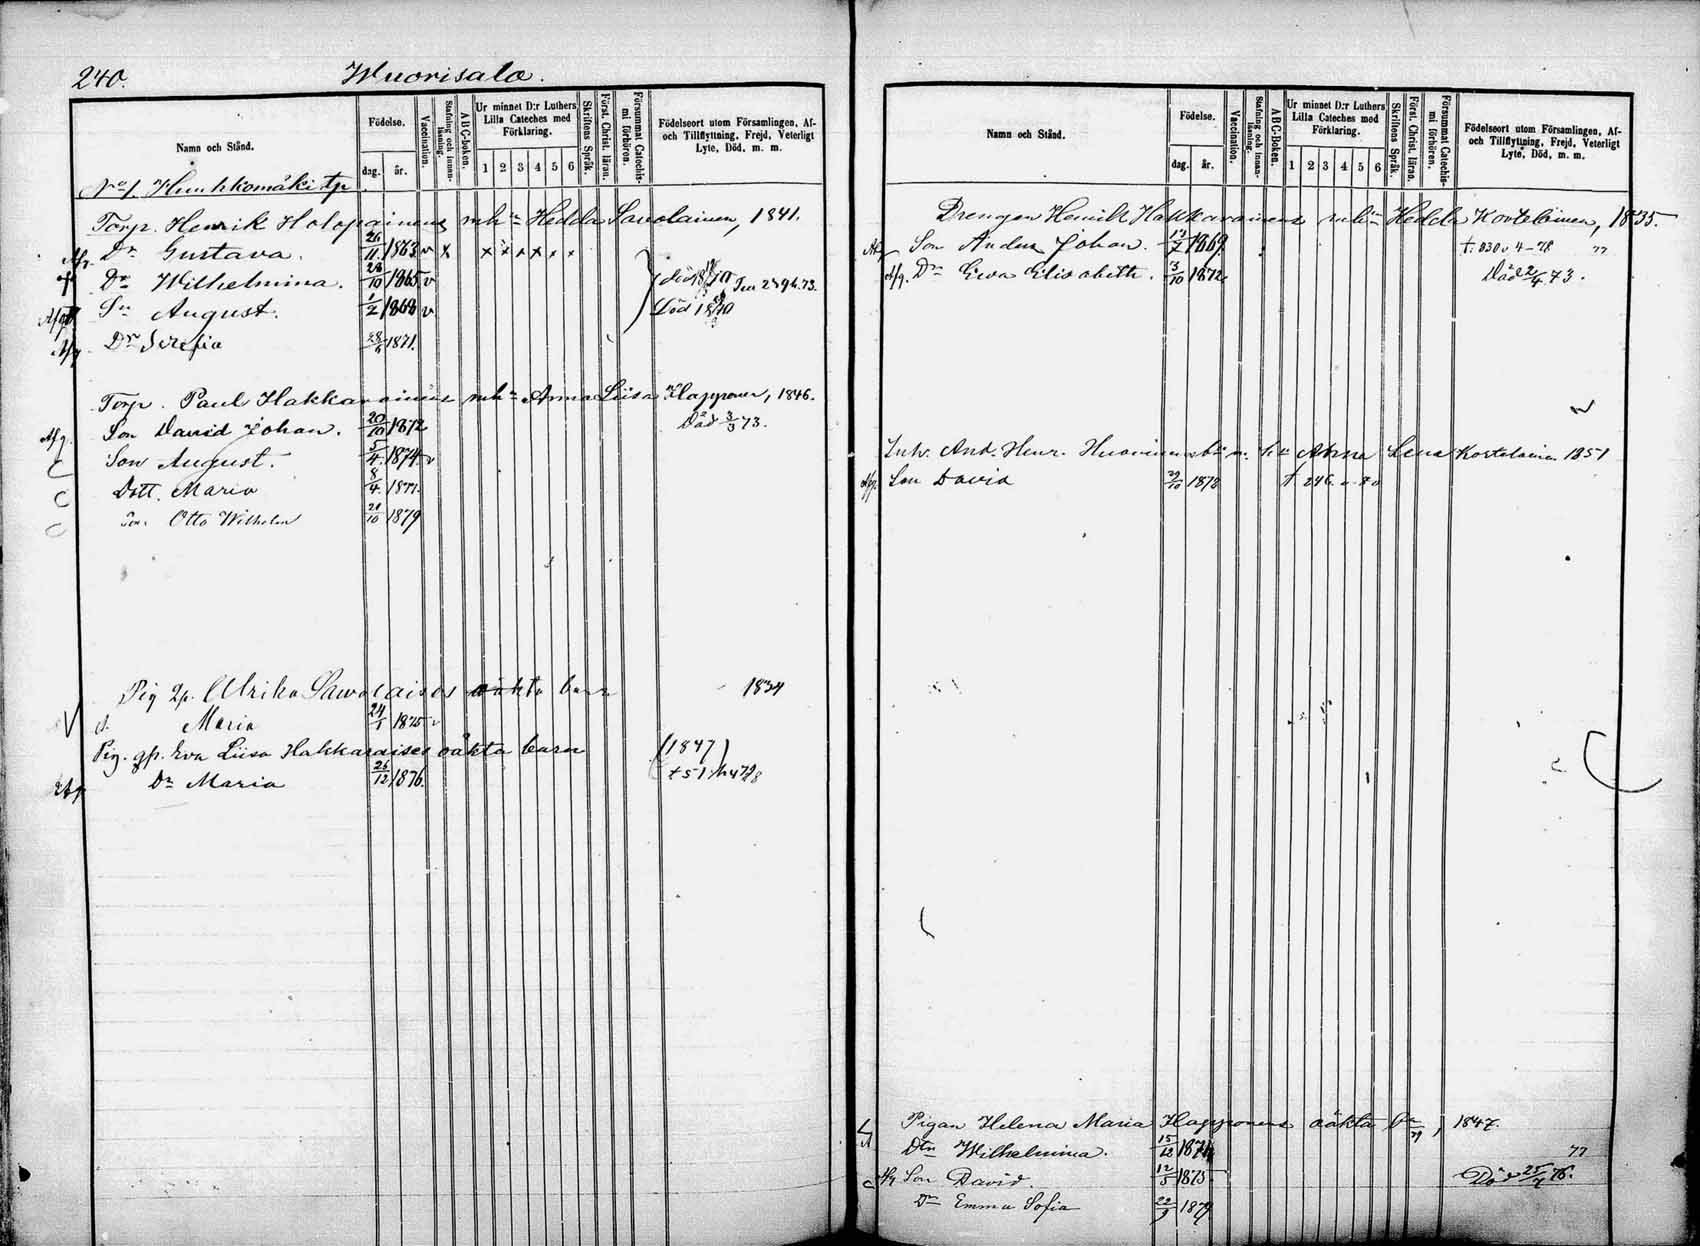 240.
Wuorisalo.
Namn och Stånd.
Födelse.
dag. år.
Vaccination.
Stafning och innanläsning.
ABC-Boken.
Ur minnet D:r Luthers Lilla Cateches med Förklaring.
1 2 3 4 5 6
Skriftens Språk.
Först. Christ. läran.
Försummat Catechismi förhören.
Födelseort utom Församlingen, Af- och Tillflyttning, Frejd, Veterligt Lyte, Död, m. m.
No 1. Huuhkomäki tp
Torp. Henrik Holopainens mh:n Hedda Savolainen, 1841.
Afg. Dr Gustava. 26/11 1863 v x x x x x x x
† Dr Wilhelmina. 28/10 1865 v
Sn August. 1/2 1868 v Död
Afg Dr Serefia 28/ 1871.
Torp. Paul Hakkarainens mh:n Anna Liisa Happonen, 1846.
Afg. Son David Johan. 20/10 1872 Död 3/3 73.
Son August. 5/4 1874 v
Dott. Maria 8/4 1877.
Son Otto Wilhelm 21/10 1879
Pig Ulrika Sawolaises oäkta barn 1834
d. Maria 24/1 1875 v
Pig. gp. Eva Liisa Hakkaraises oäkta barn (1847)
Dr Maria 26/12 1876.
Namn och Stånd.
Födelse.
dag. år.
Vaccination.
Stafning och innanläsning.
ABC-Boken.
Ur minnet D:r Luthers Lilla Cateches med Förklaring.
1 2 3 4 5 6
Skriftens Språk.
Först. Christ. läran.
Försummat Catechismi förhören.
Födelseort utom Församlingen, Af- och Tillflyttning, Frejd, Veterligt Lyte, Död, m. m.
Drengen Henrik Hakkarainens Hedda Kortelainen, 1835.
Son Anders Johan. 1869
Afg. Dr Ewa Elisabeth. 13/10 1872. Död 2/4 73.
Inh. And. Henr. Anna Lena Kortelainen 1851
Son David 29/10 1878
Pigan Helena Maria Happonens oäkta 1847.
Dtn Wilhelmina. 15/12
Son David. 12/5 1875 Död 25/ 76.
Dr Emma Sofia 22/9 1879